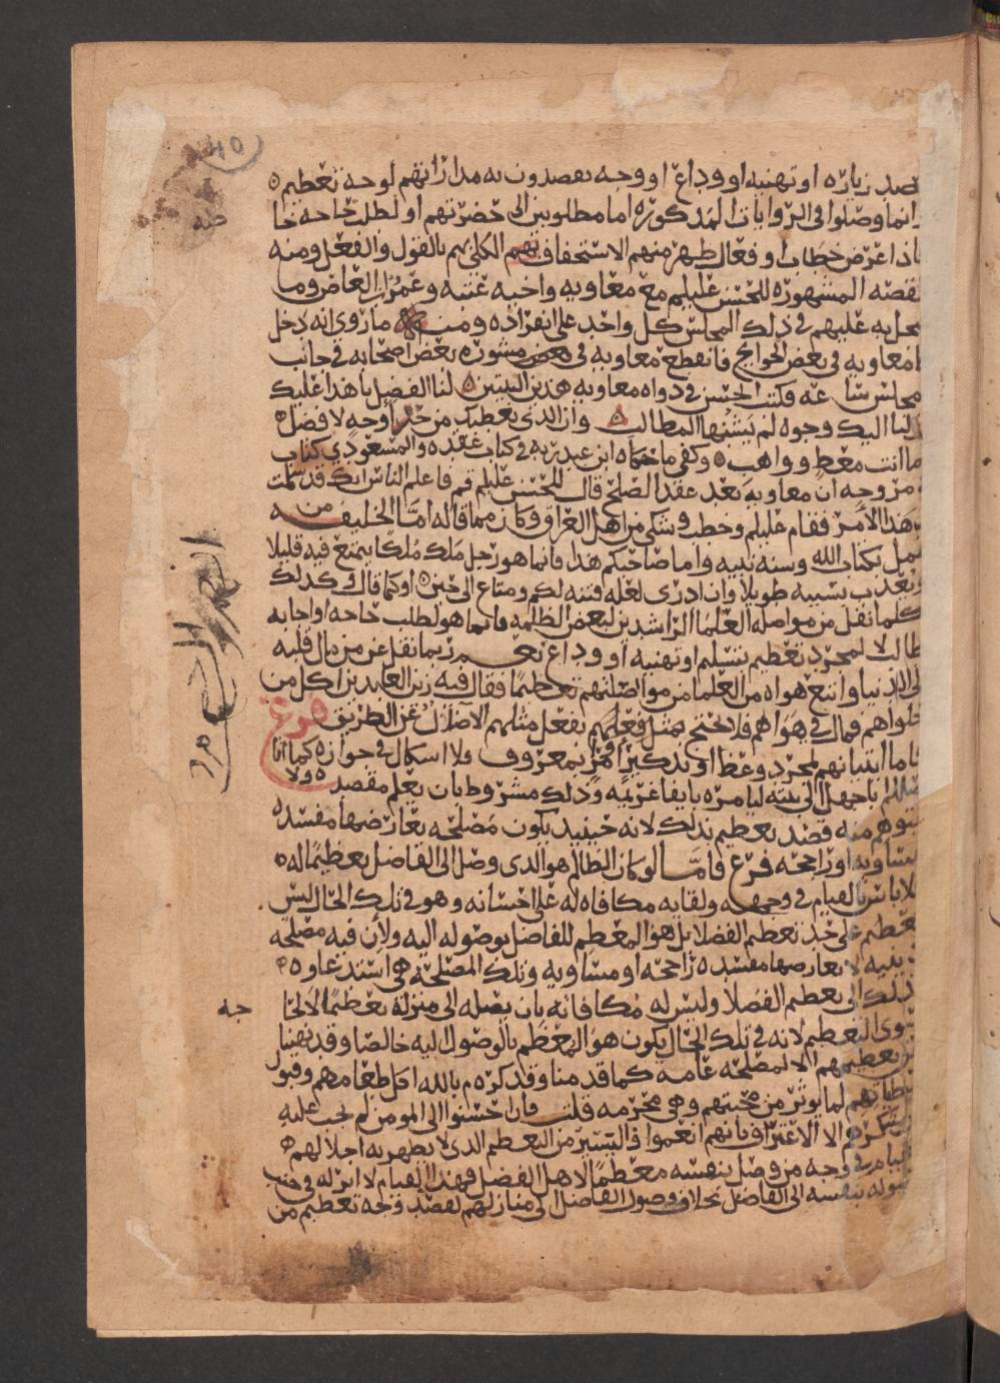 قصد زياره او تهنيه او وداع او وجه يقصدون به مداراتهم لوجه تعظيم
وانما وصلوا في الروايات المذكوره اما مطلوبين الى حضرتهم او لطلب حاجه خا
فاذا عرض خطاب او فعال ظهر منهم الاستحفاف بهم الكلي بهم بالقول والفعل ومنه
القصه المشهوره للحسن عليلم مع معاويه واخيه عتبه وعمرو بن العاص وما
عليهم في ذلك المجلس كل واحد على انفراده ومنه ما روي انه دخل
معاويه في بعض الحوايج فانقطع معاويه في بعض مشوره بعض اصحابه في جانب
مجلس ساعه فكتب الحسن في دواه معاويه هذين البيتين لنا الفضل يا هذا عليك
لنا اليك وجوه لم يشنها المطالب وان الذي يعطيك من حر اوجه لا فضل
ما انت معط وواهب وكفى ما حكاه ابن عبد ربه في كتاب عقده والمسعودي كتاب
مروجه ان معاويه بعد عقد الصلح قال للحسن عليلم قم فاعلم الناس انك قد سلمت
هذا الامر فقام عليلم وخطب وشكى من اهل العراق وكان مما قاله اما الخليفه من
عمل بكتاب الله وسنه نبيه واما صاحبكم هذا فانما هو رجل ملك ملكا يمتع فيه قليلا
ويعذب بسببه طويلا وان ادري لعله فتنه لكم ومتاع الى حين او كما قال وكذلك
كلما نقل من مواصله العلما الراشدين لبعض الظلمه فانما هو لطلب حاجه او اجابه
طالب لا لمجرد تعظيم بتسليم او تهنيه او وداع نعم ربما نقل عن من مال قلبه
الى الدنيا واتبع هواه من العلما من مواصلتهم تعظيما فقال فيه زين العابدين اكل من
حلواهم فمال في هواهم فلا يحتج بمثل فعلهم بفعل مثلهم الاضلال عن الطريق فرع
فاما اتيانهم لمجرد وعظ او تذكير او امر بمعروف فلا اشكال في جوازه كما اتا
يا جهل الى بيته ليامره بايفا غريمه وذلك مشروط بان يعلم مقصده ولا
يتوهم منه قصد تعظيم بذلك لانه حينيذ يكون مصلحه يعارضها مفسده
مساويه او راجحه فرع فاما لو كان الظالم هو الذي وصل الى الفاضل تعظيما له
فلا باس بالقيام في وجهه ولقايه مكافاه له على احسانه وهو في تلك الحال ليس
تعظيم على حد تعظيم الفضلا بل هو المعظم للفاضل بوصوله اليه ولان فيه مصلحه
دينيه لا يعارضها مفسده راجحه او مساويه وتلك المصلحه هي استدعاوه
ذلك الى تعظيم الفضلا وليس له مكافاته بان يصله الى منزله تعظيما لا لحا
جه
سوى التعظيم لانه في تلك الحال يكون هو المعظم بالوصول اليه خالصا وقد نهينا
عن تعظيمهم الا لمصلحه عامه كما قدمنا وقد كره م بالله اكل طعامهم وقبول
عطاتهم لما يوثر من محبتهم وهي محرمه قلت فان احسنوا الى المومن لم يجب عليه
شكرهم الا الاعتراف بانهم انعموا في اليسير من التعظيم الذي لا يظهر به اجلالهم
القيام في وجه من وصل بنفسه معظما لاهل الفضل فهذا القيام لا اثر له في جنب
وصوله بنفسه الى الفاضل بخلاف وصول الفاضل الى منازلهم لقصد وجه تعظيم من